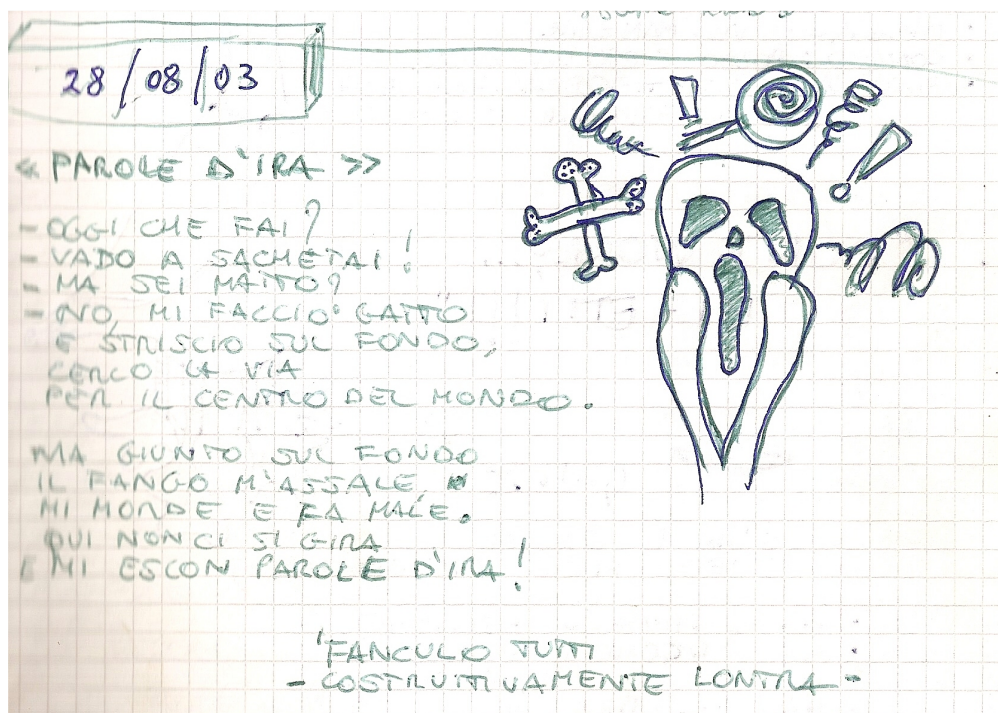 28/08/03
« PAROLE D'IRA »
- OGGI CHE FAI?
- VADO A SACHETAI!
- MA SEI MATTO?
- NO, MI FACCIO GATTO
E STRISCIO SUL FONDO,
CERCO LA VIA
PER IL CENTRO DEL MONDO.
MA GIUNTO SUL FONDO
IL FANGO M'ASSALE,
MI MORDE E FA MALE.
QUI NON CI SI GIRA
E MI ESCON PAROLE D'IRA!
'FANCULO TUTTI
- COSTRUTTIVAMENTE LONTRA -